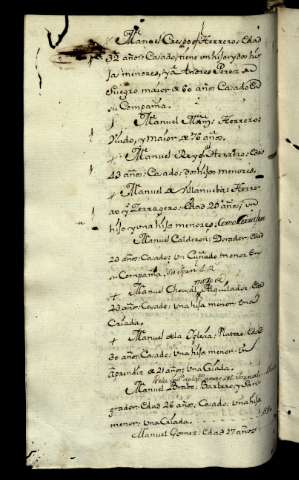 Manoel Crespo Herrero, Edad
32 años Casado, tiene un hijo y dos hi
jas menores, y a Andres Perez su
Suegro maior de 60 años Casado en
su Compañia.
Manuel Mrñz Herrero
Viudo, y maior de 76 años.
Manuel Rey Herrero, Edad
43 años: Casado: dos hijos menores.
Manuel de Villanueba: Herre
ro y Zerragero: Edad 20 años, un
hijo y una hija menores,
Manuel Calderon: Dorador: Edad
20 años: Casado: Un Cuñado menor en
su Compañia,
Manuel Alquilador, Edad
23 años: Casado: una hija menor: Una
Criada.
Manuel de la Yglesia: Platero: Edad
30 años: Casado: Una hija menor: Un
Aprendiz de 21 años: Una Criada.
Manuel Brabo: Barbero y San
grador: Edad 26 años: Casado: una hija
menor: Una Criada.
Manuel Gomez: Edad 27 años